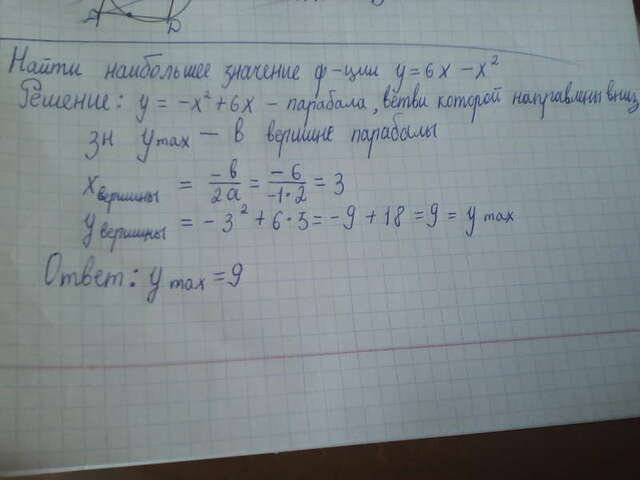 A D
Найти наибольшее значение ф-ции y = 6x - x²
Решение: y = -x² + 6x - парабала, ветви которой направлены вниз
зн y max — в вершине парабалы
x вершины = -b/2a = -6/-1·2 = 3
y вершины = -3² + 6·3 = -9 + 18 = 9 = y max
Ответ: y max = 9